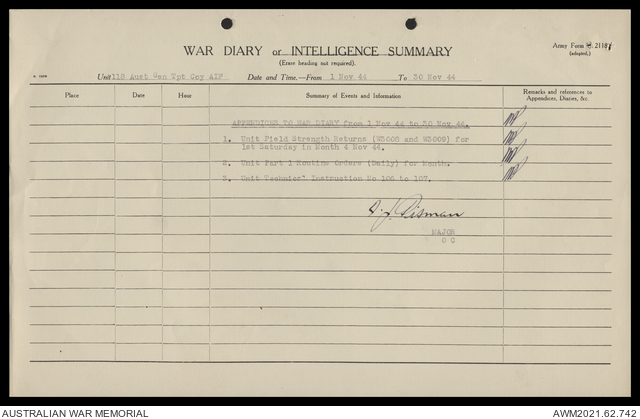 WAR DIARY or INTELLIGENCE SUMMARY
(Erase heading not required).
Army Form
(adapted.)
Unit 118 Aust Gen Tpt Coy AIF Date and Time.—From 1 Nov 44 To 30 Nov 44
Place Date Hour Summary of Events and Information Remarks and references to Appendices, Diaries, &c.
APPENDICES TO WAR DIARY from 1 Nov 44 to 30 Nov 44.
1. Unit Field Strength Returns (W3008 and W3009) for
1st Saturday in Month 4 Nov 44.
2. Unit Part 1 Routine Orders (Daily) for Month.
3. Unit Technical Instruction No 106 to 107.
MAJOR
O C
AUSTRALIAN WAR MEMORIAL
AWM2021.62.742